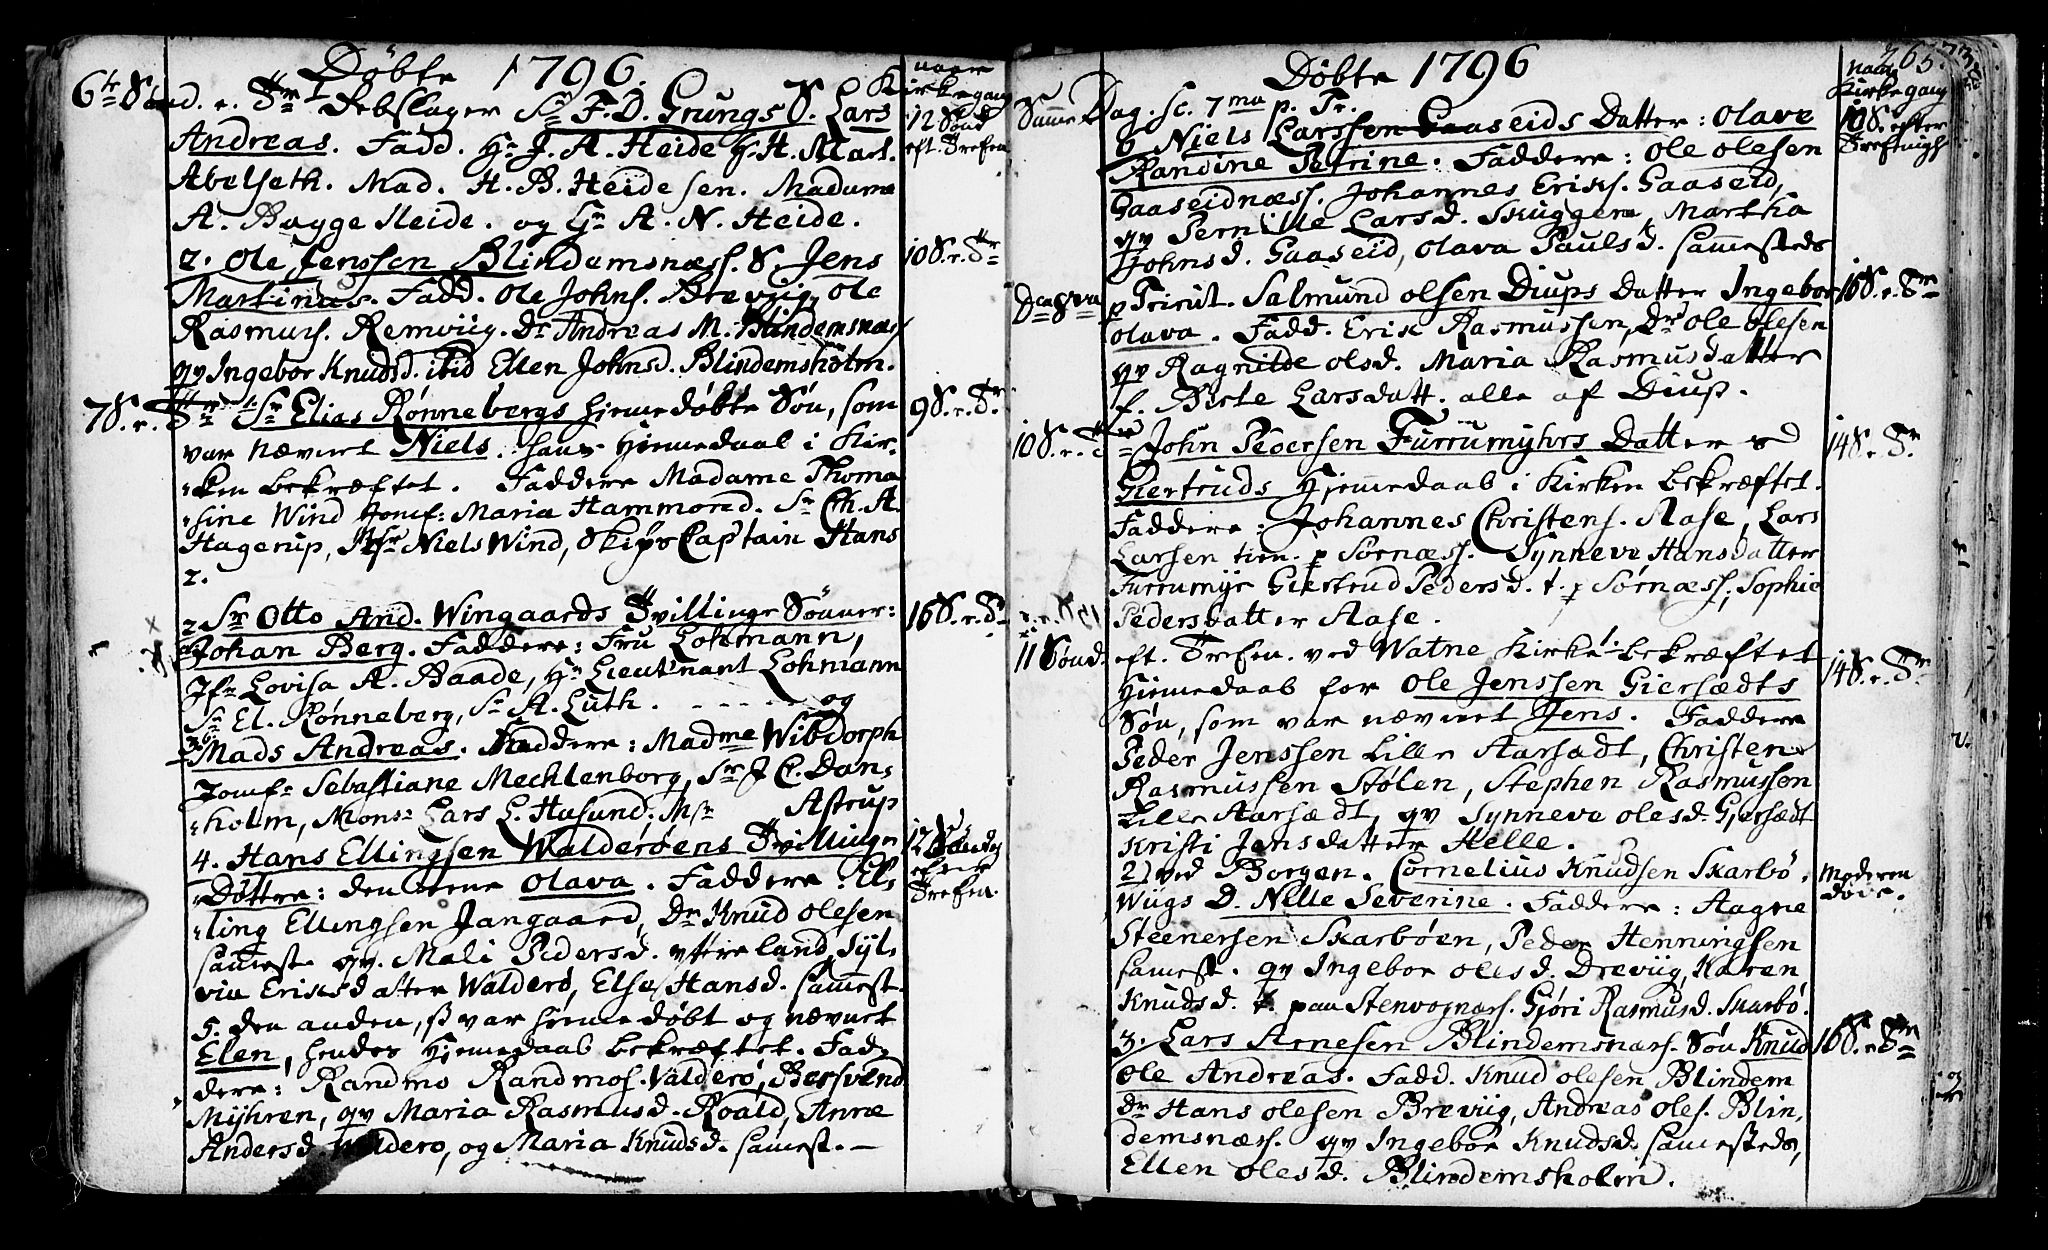 Döbte 1796.
naar
Kirkegang
6te Sönd. e. Tr. 1. Rebslager Sr F. D. Grungs S. Lars
12 Sönd.
eft. Trefen.
Andreas. Fadd. Hr J. A. Heide Hr H. Mart.
Abelseth. Mad. H. B. Heide sen. Madame
A. Bagge Heide. og Hr A. N. Heide.
2. Ole Jenssen Blindemsnæss. S. Jens
10 S. e. Tr
Martinus. Fadd. Ole Johns. Brevig, Ole
Rasmuss. Remviig. Dr Andreas M. Blindemsnæs
qv Ingebor Knudsd. ibid Ellen Johnsd. Blindemsholm.
7 S. e. Tr 1. Sr Elias Rønnebergs hjemedøbte Søn, som
9 S. e. Tr
var nævnet Niels. hans Hjemedaab i Kir-
ken bekræftet. Faddere Madame Thoma
sine Wind Jomf: Maria Hammored. Sr Ch. A.
Hagerup, Msr Niels Wind, Skips Captain Hans
2.
2 Sr Otto And. Wingaards Tvillinge Sönner:
16 S. e. Tr
Johan Berg. Faddere: Fru Lohmann,
Jfr Lovisa A. Baade, Hr Lieutnant Lohmann
Sr El. Rønneberg, Sr A. Luth. og
3. Mads Andreas. Faddere: Madme Wibdorph
Jomfr Sebastiane Mechlenborg, Sr J C. Dan-
holm, Monsr Lars L. Husund, Msr Astrup
4. Hans Ellingsen Walderöens Tvillinge
12 Söndag
efter
Trefen.
Döttre: den eene Olava. Faddere: El-
ling Ellingsen Jangaard, Dr Knud Olesen
sammest. qv. Mali Pedersd. Ytterland, Syl-
via Eriksdatter Walderö, Else Hansd. sammest.
5. den anden, so var hjeme døbt og nævnet
Elen, hendes Hjemedaab bekræftet. Fad-
dere: Randmo Randmos. Valderö, Bersvend
Myhren, qv Maria Rasmusd. Roald, Anne
Andersd Walderö, og Maria Knudsd. sammest.
Döbte 1796
265.
naar
Kirkegang
Samme Dag. sc. 7ma p. Tr.
6 Niels Larssen Gaaseids Datter: Olave
10 S. efter
Randine Petrine. Faddere: Ole Olesen
Gaaseidnæss. Johannes Eriks. Gaaseid,
qv Pernille Larsd. Skuggen, Martha
Johnsd. Gaaseid, Olava Paulsd. sammesteds
Dca 8va p Trinit. Salmund Olsen Diups Datter Ingebor
16 S. e. Tr
Olava. Fadd. Erik Rasmussen, Dr Ole Olesen
qv Ragnilde Olsd. Maria Rasmusdatter
f. Birte Larsdatt. alle af Diup.
10 S. e. Tr John Pedersen Furrumyhrs Datter
14 S. e. Tr.
Giertruds Hjemmedaab i Kirken bekræftet.
Faddere: Johannes Christens. Aase, Lars
Larsen tien. p Sørnæss. Synneve Hansdatter
Furrumyr Giertrud Pedersd. t. p Sørnæss, Sophie
Pedersdatter Aase.
11 Sönd. eft. Trefen. ved Watne Kirke 1. bekræftet
14 S. e. Tr
Hjemedaab for Ole Jenssen Giersædts
Søn, som var nævnet Jens. Faddere
Peder Jenssen Lille Aarsædt, Christen
Rasmussen Stølen, Stephen Rasmussen
Lille Aarsædt, qv Synneve Olesd. Gjersædt
Kristi Jensdatter Helle.
2) ved Borgen. Cornelius Knudsen Skarbö-
Moderen
döde.
Wiigs D. Nelle Severine. Faddere: Aagne
Steenersen Skarböen, Peder Henningsen
samest. qv Ingebor Olesd. Dreviig, Karen
Knudsd. t. paa Stenvognæss. Gjøri Rasmusd. Skarbö.
3. Lars Arnesen Blindemsnæss. Søn Knud
16 S. e. Tr
Ole Andreas. Fadd. Knud Olesen Blindem
Dr Hans Olesen Breviig, Andreas Oles. Blin-
demsnæss. qv Ingebor Knudsd. sammesteds,
Ellen Olesd. Blindemsholm.